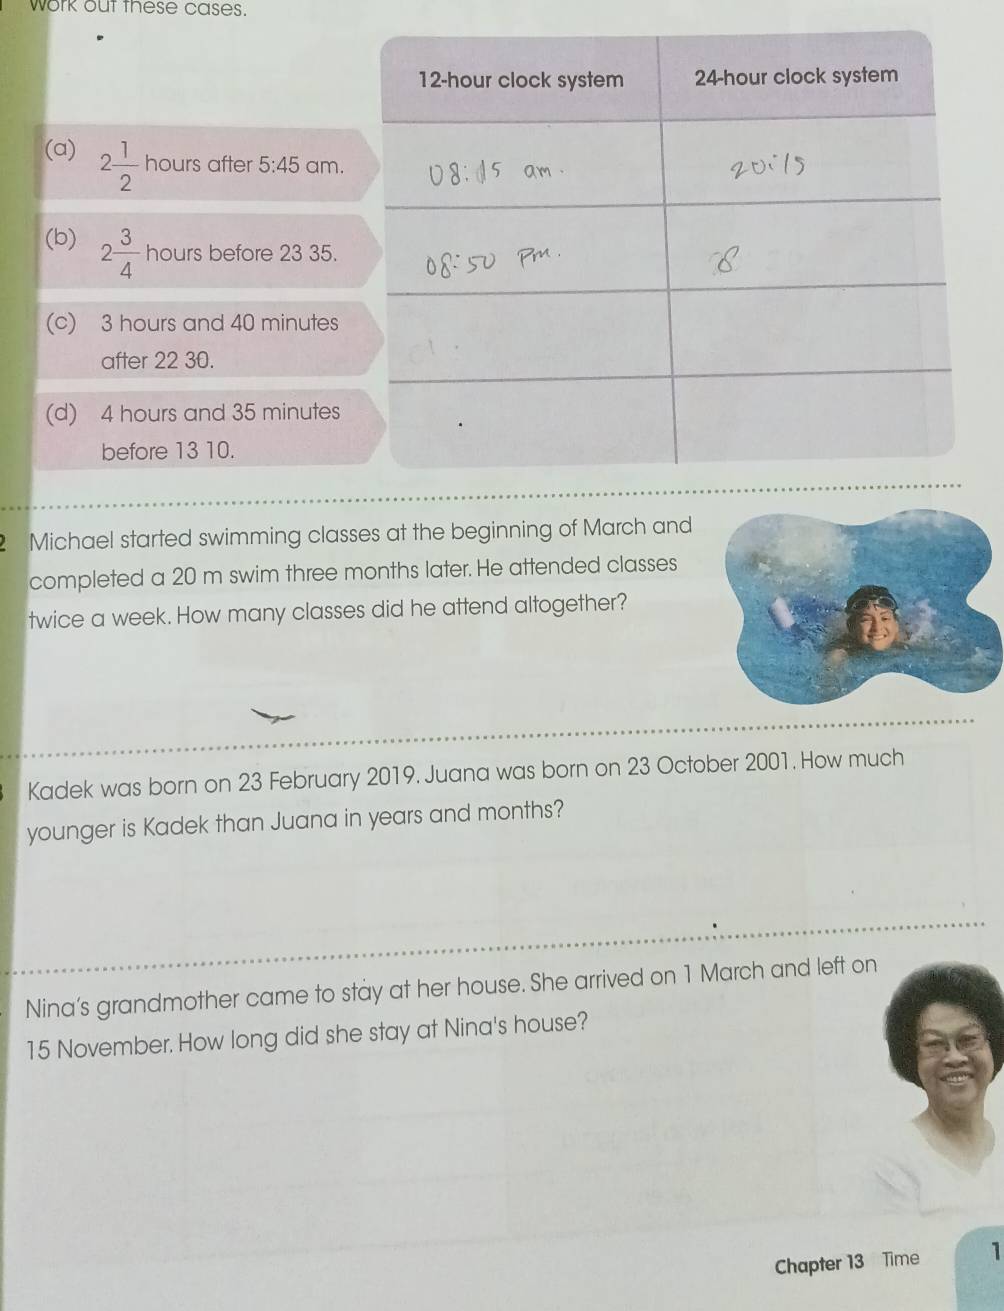 work out these cases.
12-hour clock system 24-hour clock system
(a) 2 1/2 hours after 5:45 am. 08:15 am. 20:15
(b) 2 3/4 hours before 23 35. 08:50 pm. 8
(c) 3 hours and 40 minutes
after 22 30.
(d) 4 hours and 35 minutes
before 13 10.
2 Michael started swimming classes at the beginning of March and
completed a 20 m swim three months later. He attended classes
twice a week. How many classes did he attend altogether?
Kadek was born on 23 February 2019. Juana was born on 23 October 2001. How much
younger is Kadek than Juana in years and months?
Nina's grandmother came to stay at her house. She arrived on 1 March and left on
15 November. How long did she stay at Nina's house?
Chapter 13 Time 1